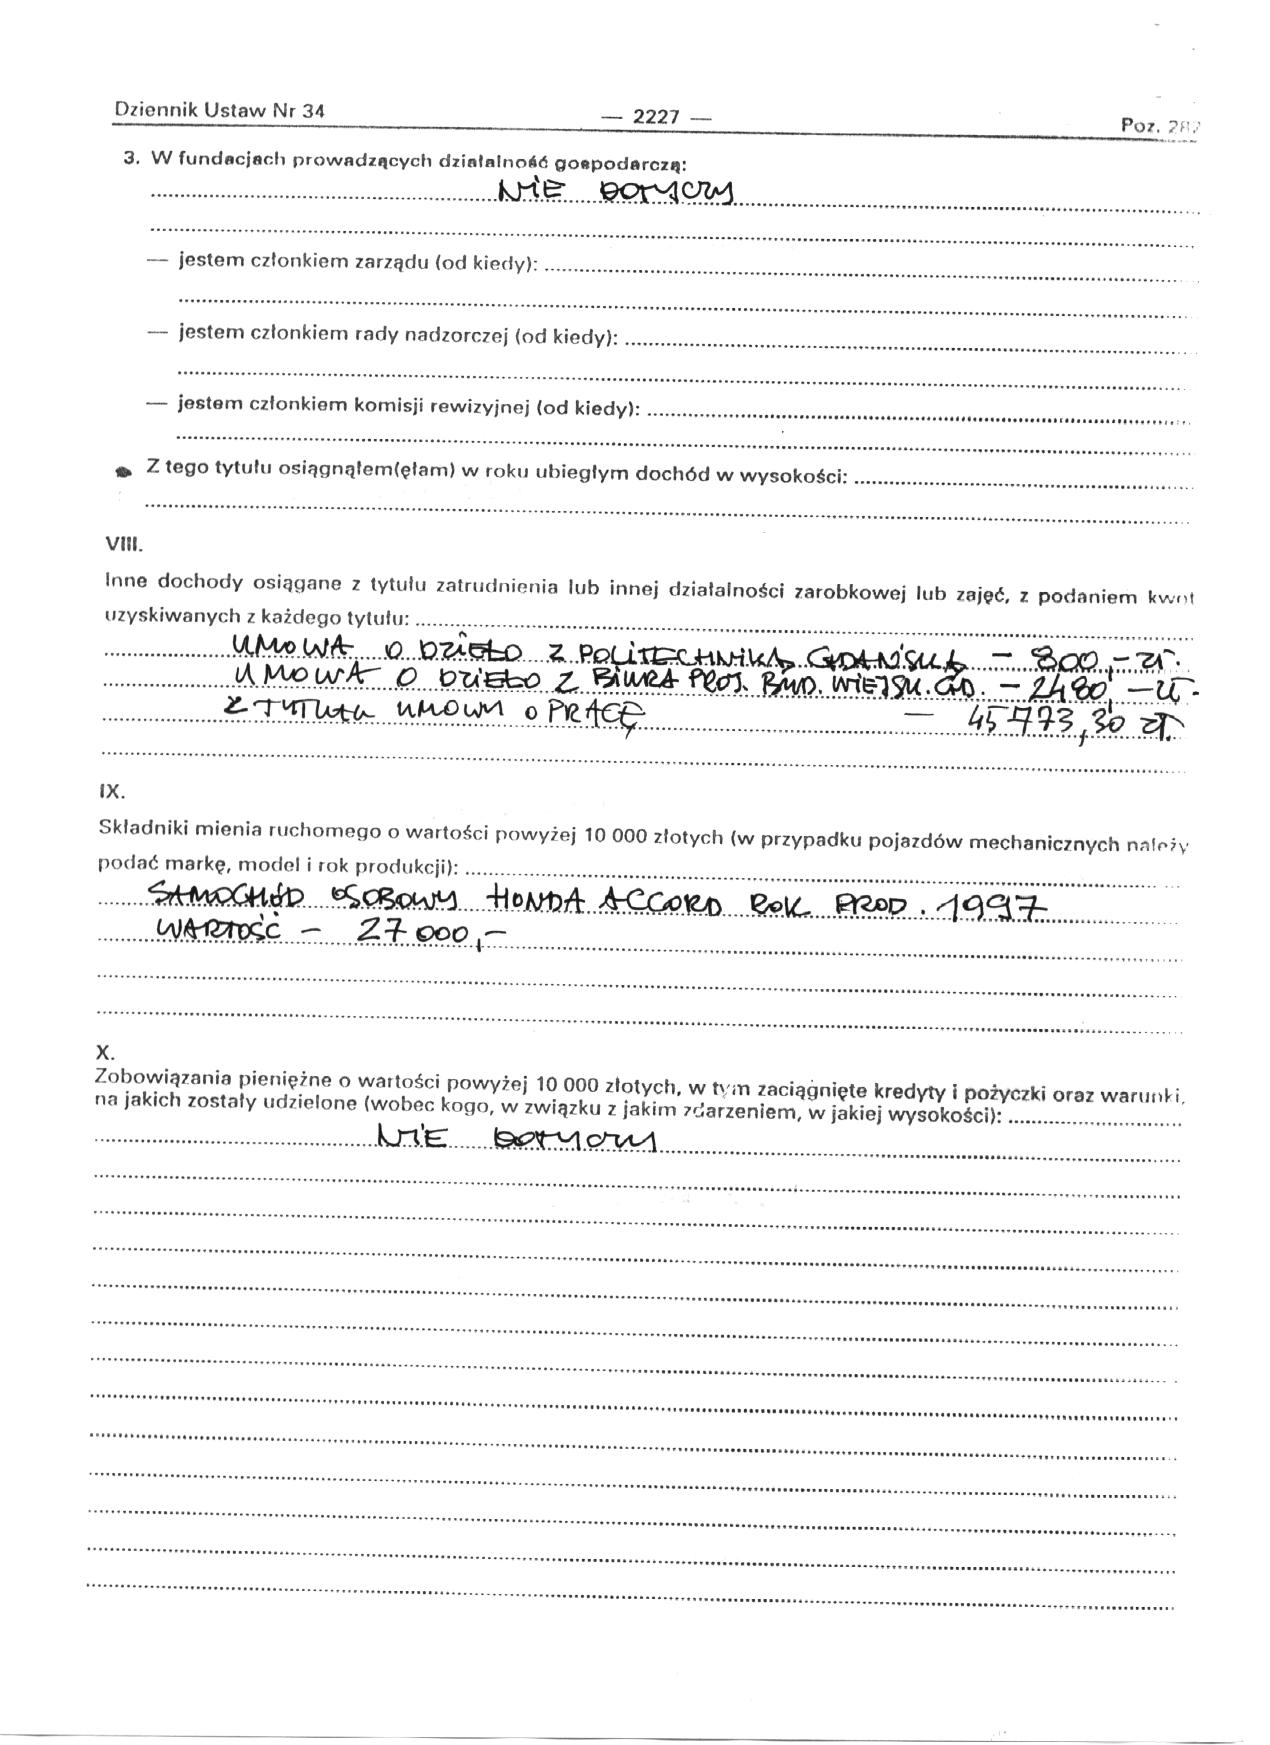 Dziennik Ustaw Nr 34
— 2227 —
Poz. 282
3. W fundacjach prowadzących działalność gospodarczą:
NIE DOTYCZY
— jestem członkiem zarządu (od kiedy):
— jestem członkiem rady nadzorczej (od kiedy):
— jestem członkiem komisji rewizyjnej (od kiedy):
Z tego tytułu osiągnąłem(ęłam) w roku ubiegłym dochód w wysokości:
VIII.
Inne dochody osiągane z tytułu zatrudnienia lub innej działalności zarobkowej lub zajęć, z podaniem kwot
uzyskiwanych z każdego tytułu:
UMOWA O DZIEŁO Z POLITECHNIKĄ GDAŃSKĄ — 800,— zł.
UMOWA O DZIEŁO Z BIURA PROJ. BUD. WIEJSK. GD. — 2480,— zł.
Z TYTUŁU UMOWY O PRACĘ — 45 773,30 zł.
IX.
Składniki mienia ruchomego o wartości powyżej 10 000 złotych (w przypadku pojazdów mechanicznych należy
podać markę, model i rok produkcji):
SAMOCHÓD OSOBOWY HONDA ACCORD ROK PROD. 1997
WARTOŚĆ — 27 000,—
X.
Zobowiązania pieniężne o wartości powyżej 10 000 złotych, w tym zaciągnięte kredyty i pożyczki oraz warunki,
na jakich zostały udzielone (wobec kogo, w związku z jakim zdarzeniem, w jakiej wysokości):
NIE DOTYCZY